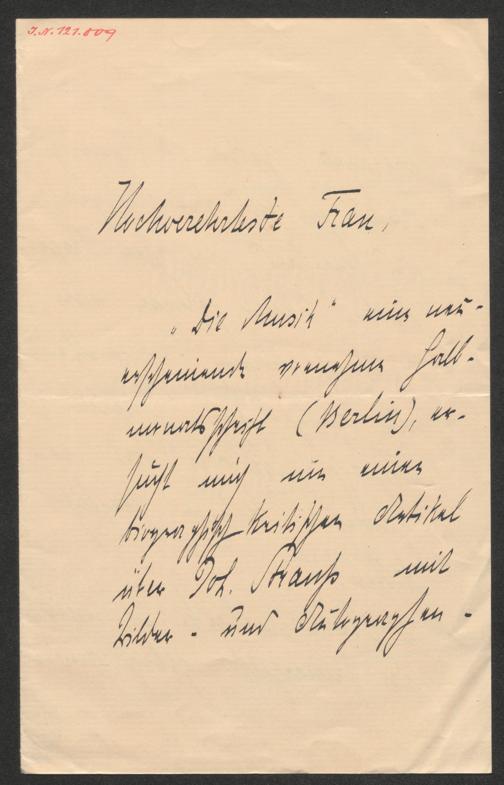 J.N. 121.809
Hochverehrteste Frau,
„Die Musik“ eine neu-
erscheinende vornehme Halb-
monatsschrift (Berlin), er-
sucht mich um einen
biographisch kritischen Artikel
über Joh. Strauß mit
Bilder- und Autographen-